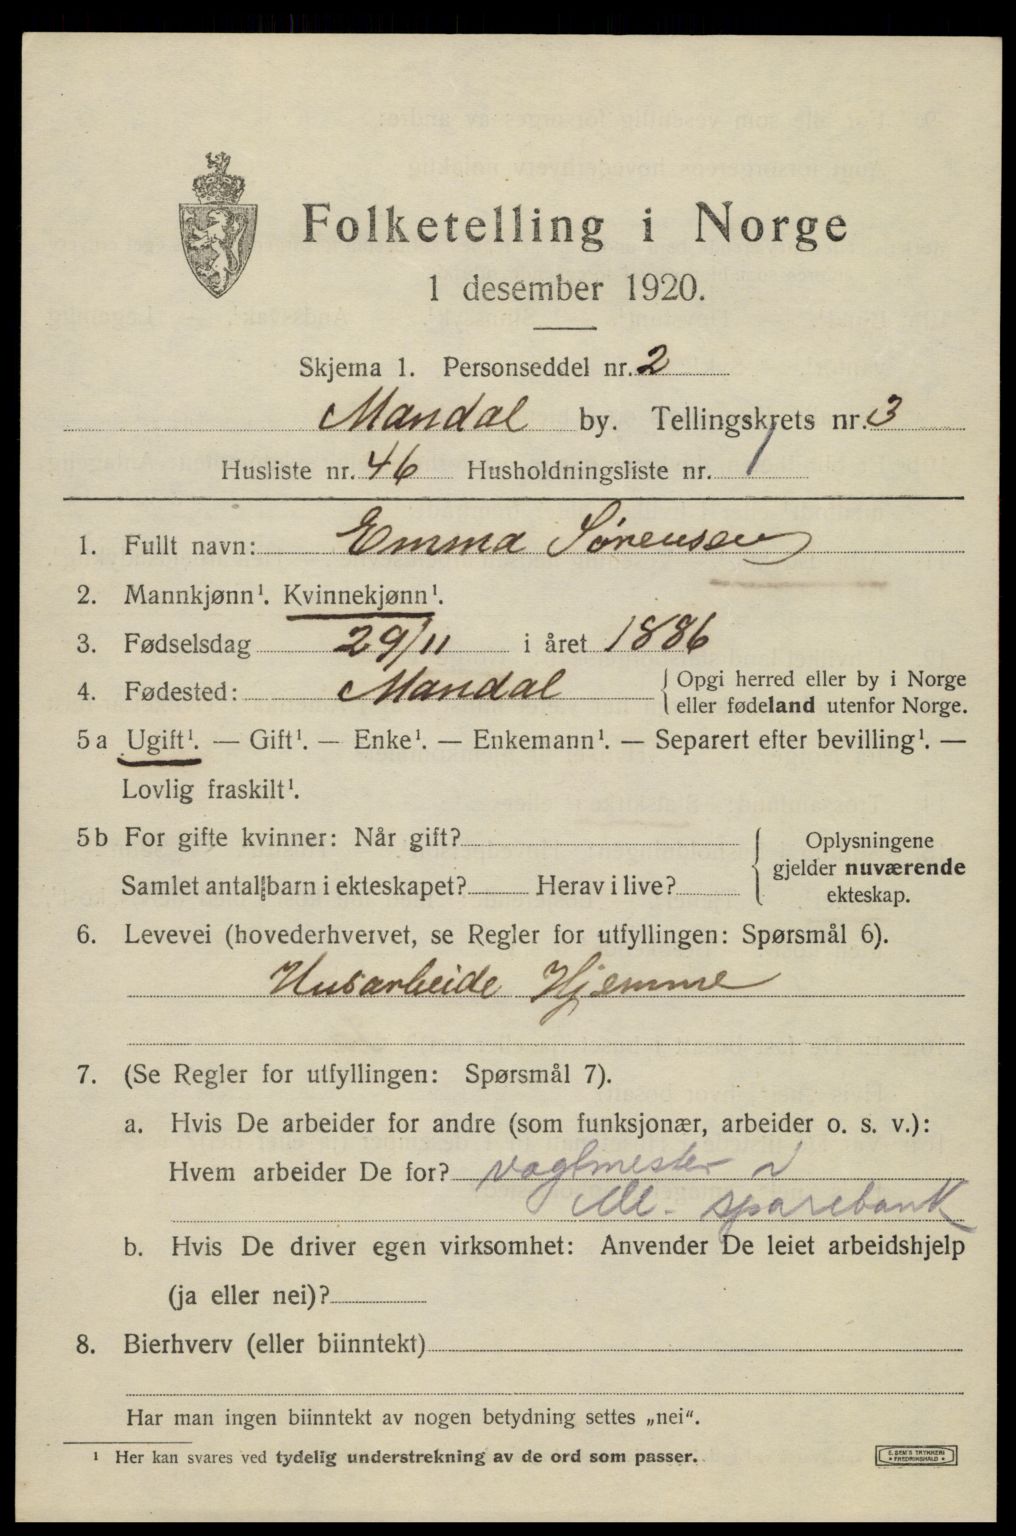 Folketelling i Norge
1 desember 1920.
Skjema 1. Personseddel nr. 2
Mandal by. Tellingskrets nr. 3
Husliste nr. 46 Husholdningsliste nr. 1
1. Fullt navn: Emma Sørensen
2. Mannkjønn¹. Kvinnekjønn¹.
3. Fødselsdag 29/11 i året 1886
4. Fødested: Mandal { Opgi herred eller by i Norge
eller fødeland utenfor Norge.
5 a Ugift¹. — Gift¹. — Enke¹. — Enkemann¹. — Separert efter bevilling¹. —
Lovlig fraskilt¹.
5 b For gifte kvinner: Når gift?
Samlet antal barn i ekteskapet? Herav i live?
{ Oplysningene
gjelder nuværende
ekteskap.
6. Levevei (hovederhvervet, se Regler for utfyllingen: Spørsmål 6).
Husarbeide Hjemme
7. (Se Regler for utfyllingen: Spørsmål 7).
a. Hvis De arbeider for andre (som funksjonær, arbeider o. s. v.):
Hvem arbeider De for? vagtmester i
Ml. sparebank
b. Hvis De driver egen virksomhet: Anvender De leiet arbeidshjelp
(ja eller nei)?
8. Bierhverv (eller biinntekt)
Har man ingen biinntekt av nogen betydning settes „nei".
¹ Her kan svares ved tydelig understrekning av de ord som passer.
E. SEM'S TRYKKERI
FREDRIKSHALD